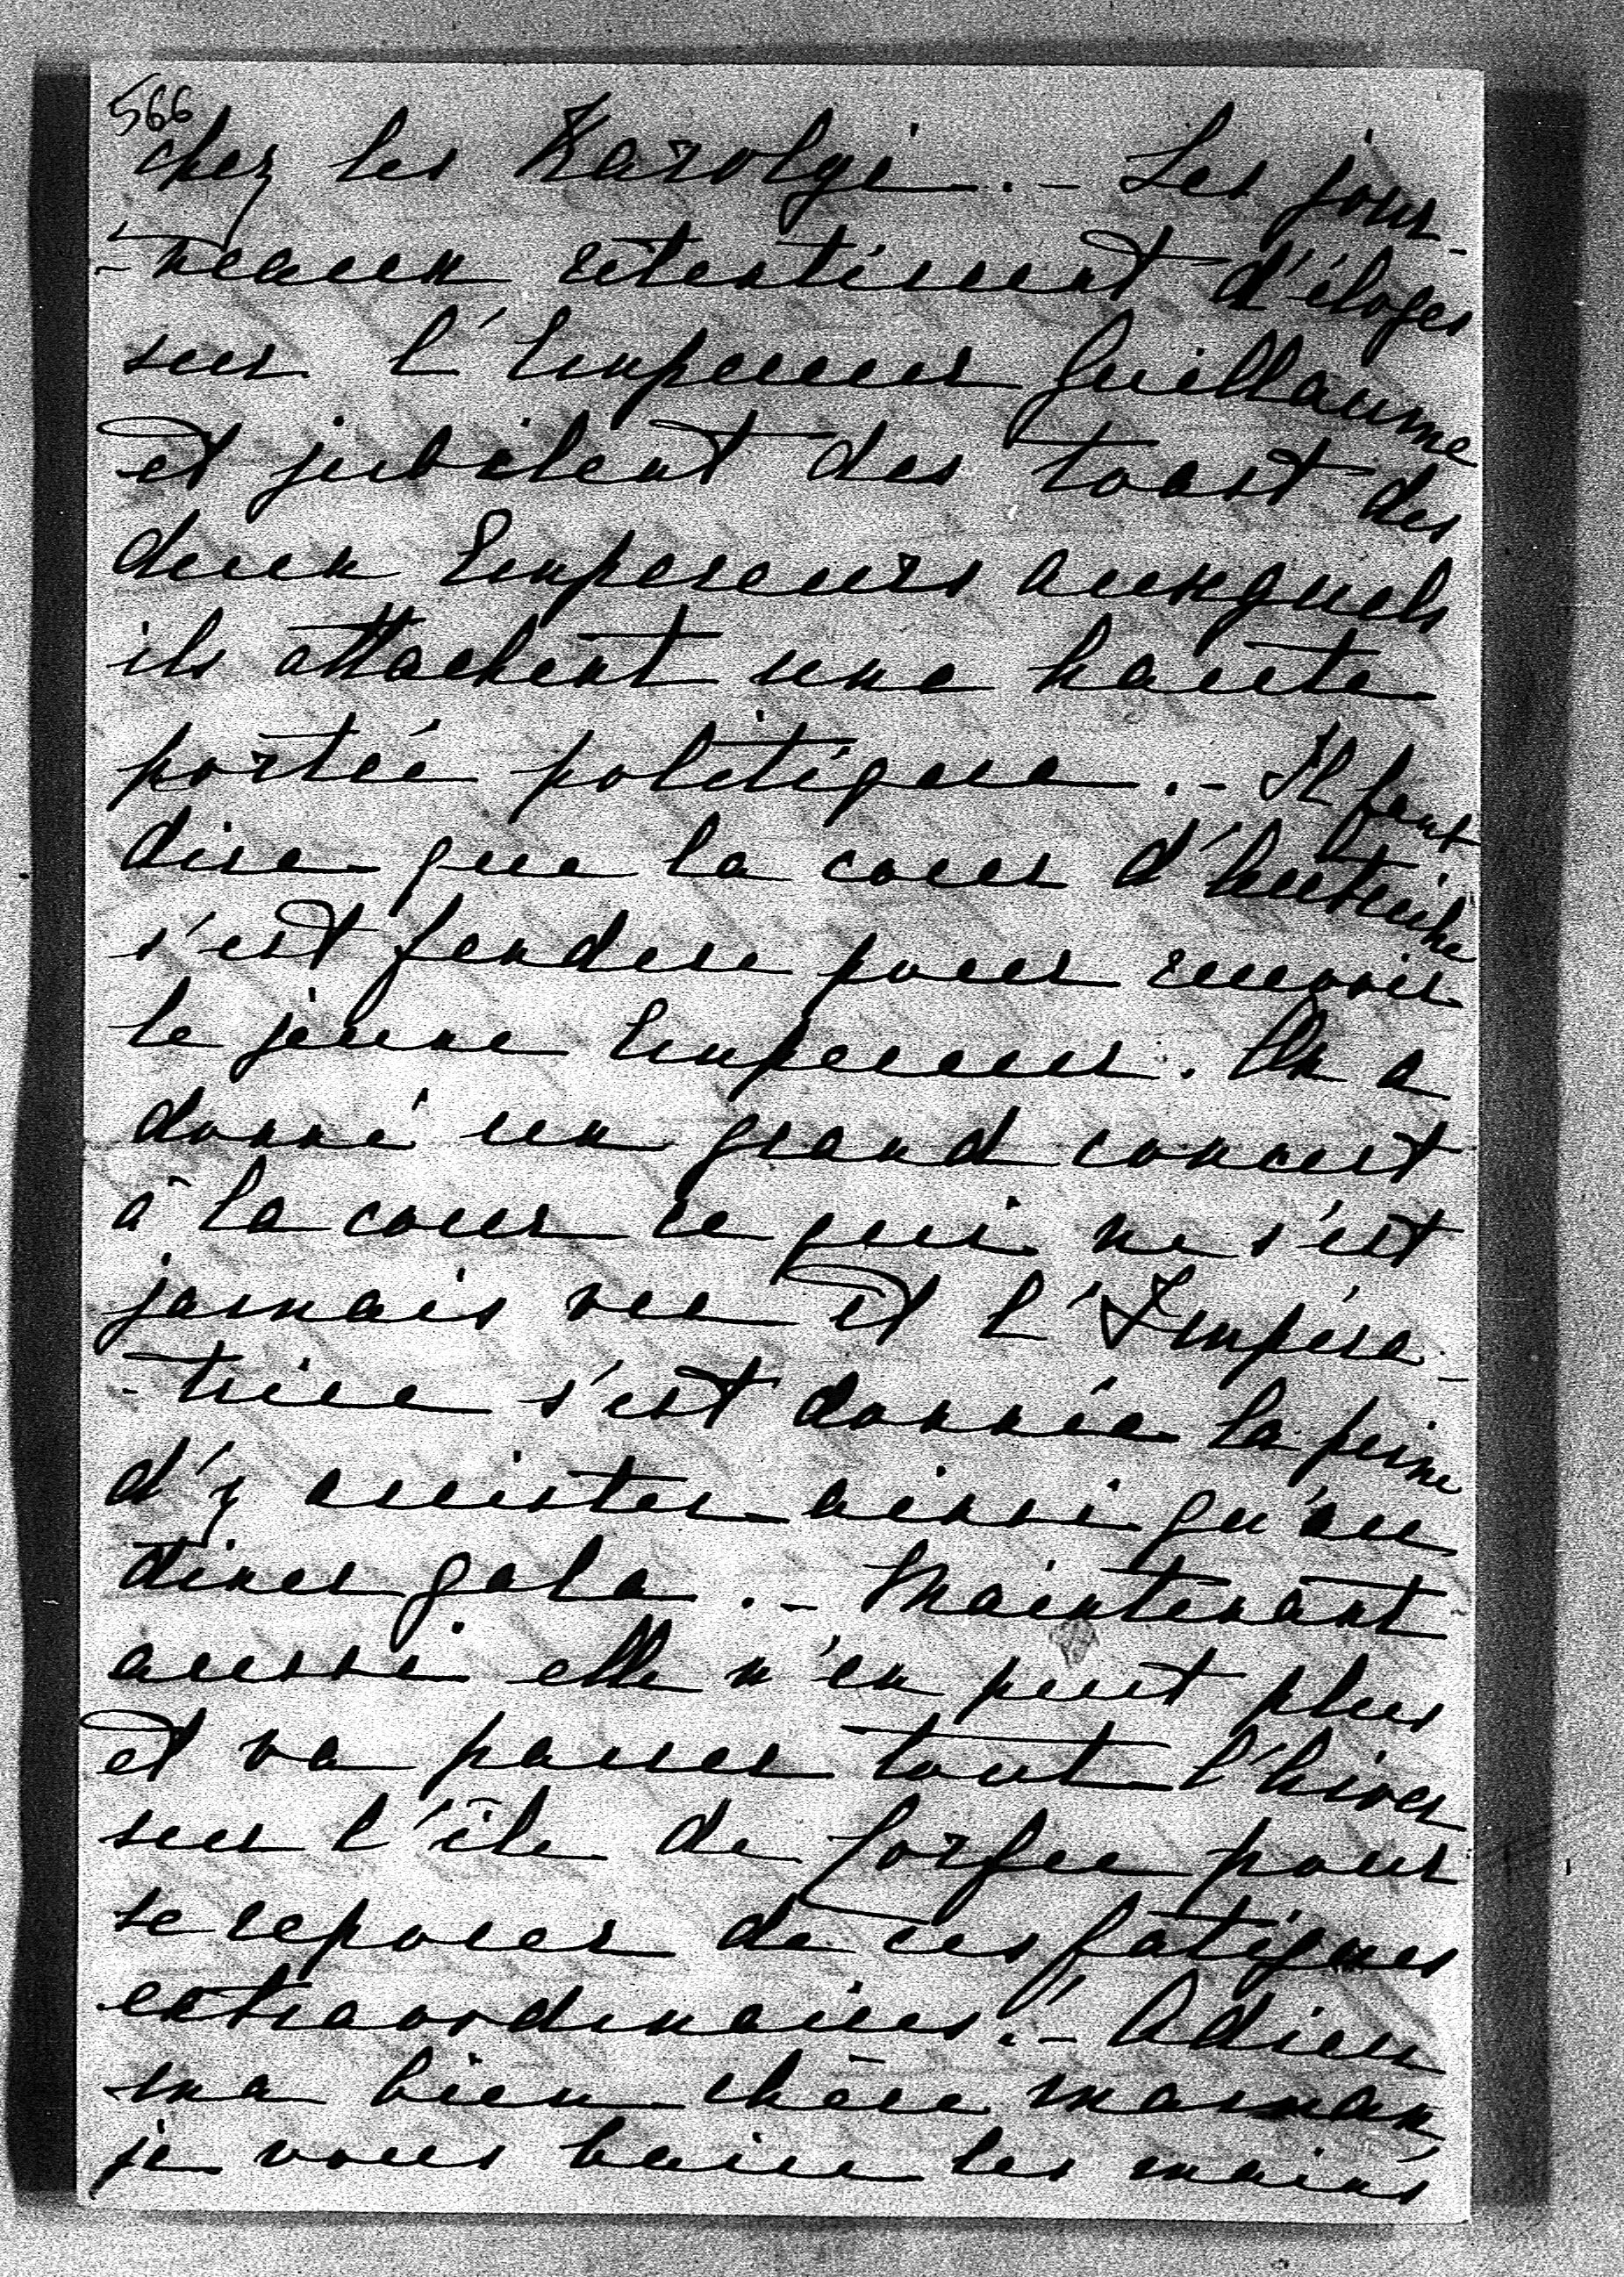 566
chez les Karolyi. – Les jour-
-naux retentissent d'éloges
sur l'Empereur Guillaume
et jubilent des toast des
deux Empereurs auxquels
ils attachent une haute
portée politique. – Il faut
dire que la cour d'Autriche
s'est fendue pour recevoir
le jeune Empereur. On a
donné un grand concert
à la cour ce qui ne s'est
jamais vu et l'Impéra-
-trice s'est donnée la peine
d'y assister ainsi qu'au
diner gala. – Maintenant
aussi elle n'en peut plus
et va passer tout l'hiver
sur l'île de Corfou pour
se reposer de ces fatigues
extraordinaires! – Adieu
ma bien chère maman
je vous baise les mains